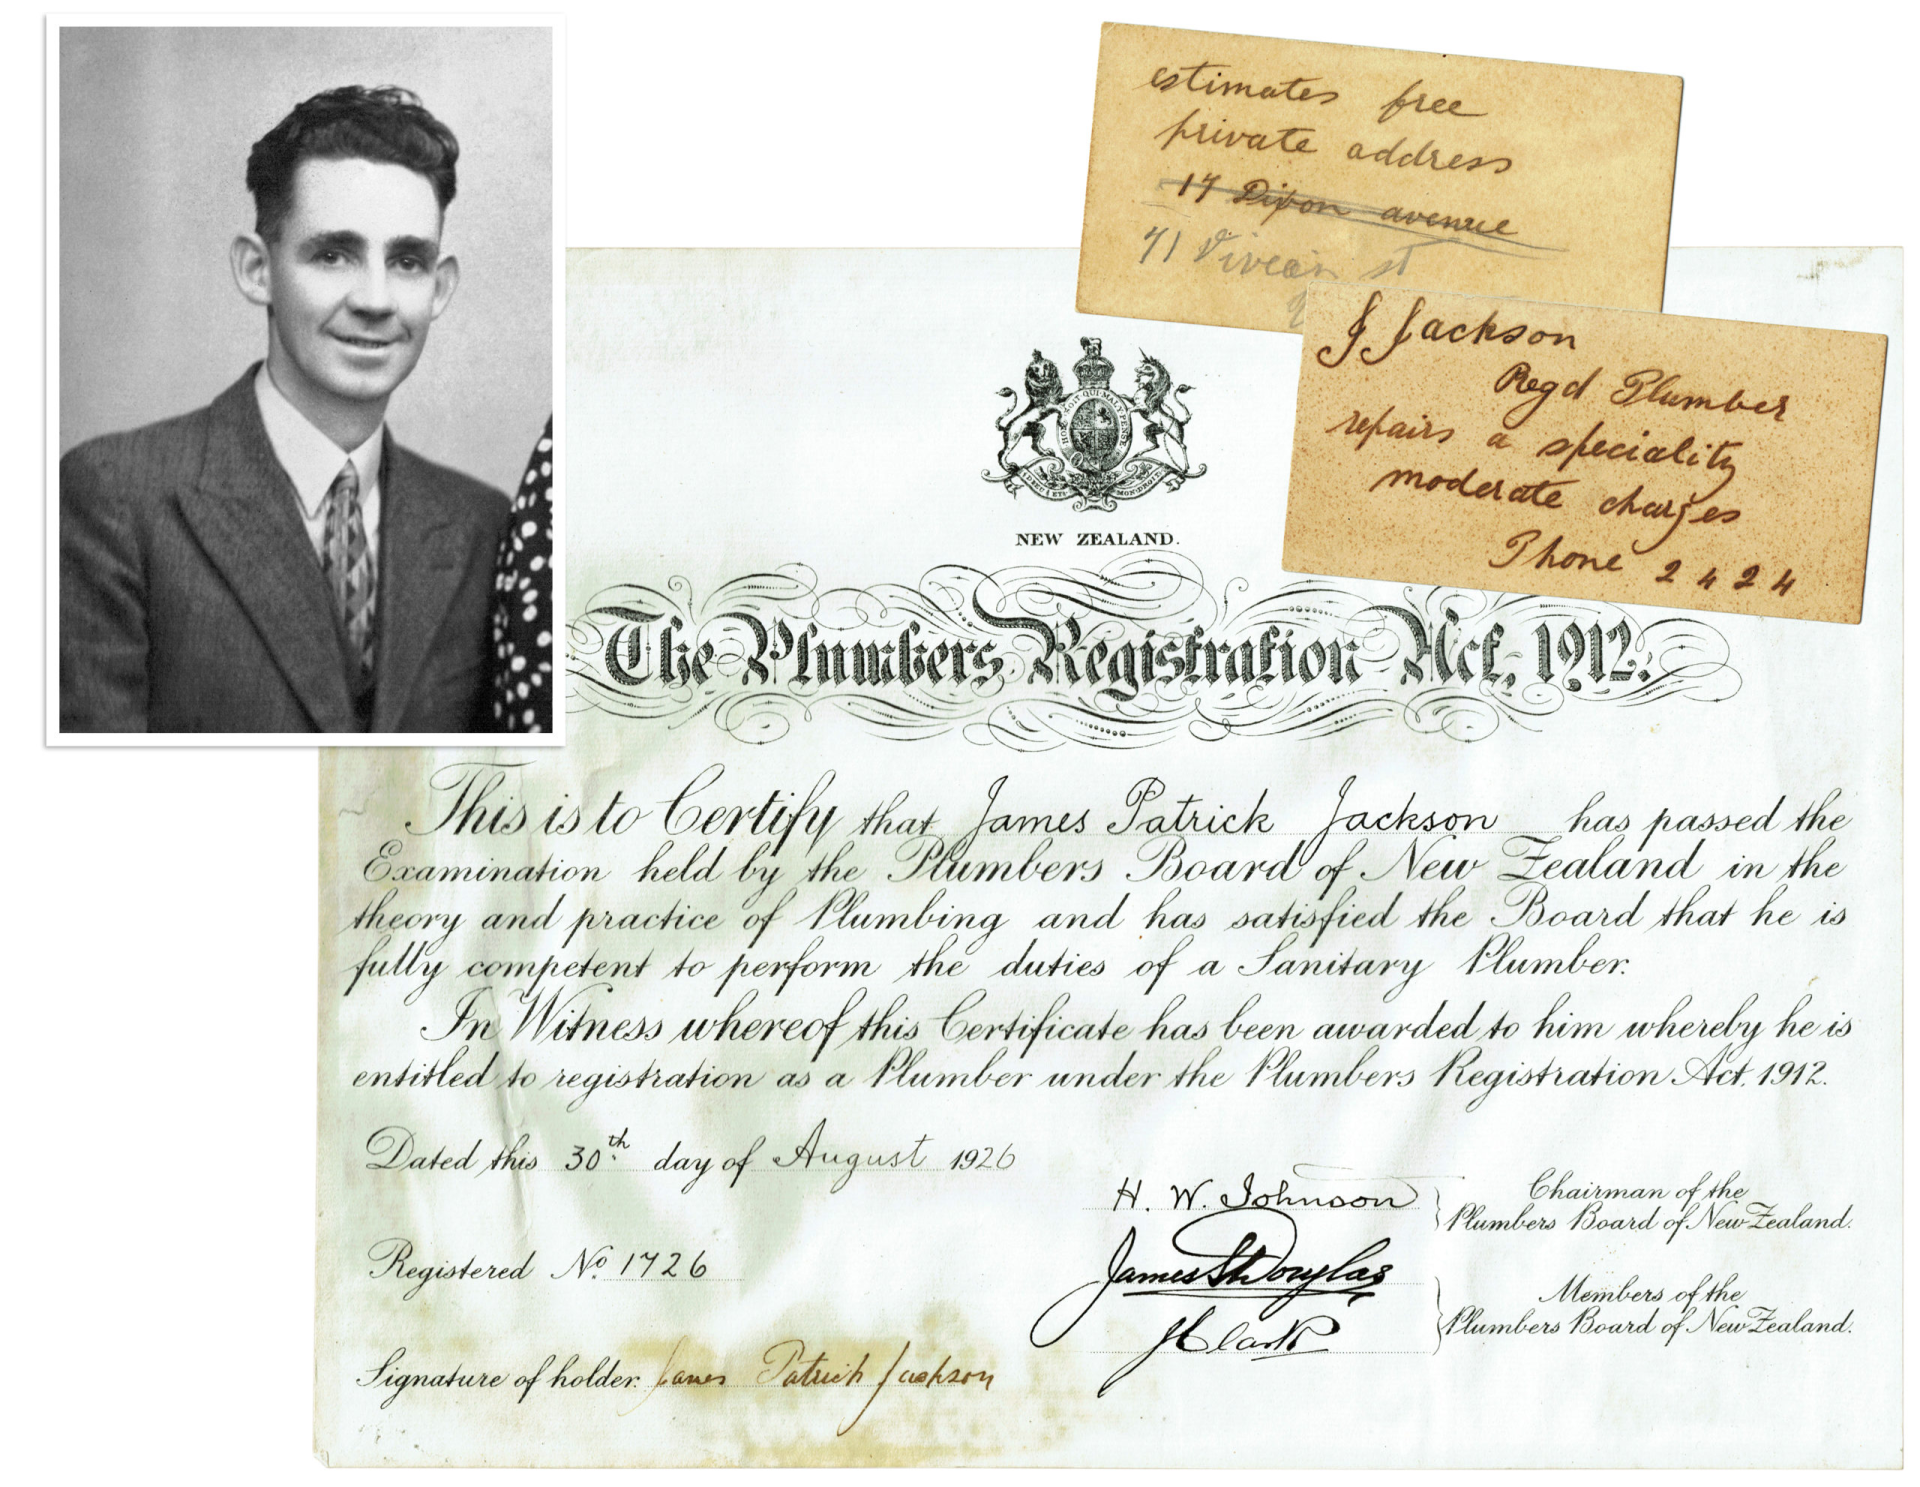 estimates free
private address
17 Dixon avenue
71 Vivian st
J Jackson
Regd Plumber
repairs a speciality
moderate charges
Phone 2424
HONI SOIT QUI MAL Y PENSE
DIEU ET MON DROIT
NEW ZEALAND.
The Plumbers Registration Act, 1912.
This is to Certify that James Patrick Jackson has passed the
Examination held by the Plumbers Board of New Zealand in the
theory and practice of Plumbing and has satisfied the Board that he is
fully competent to perform the duties of a Sanitary Plumber.
In Witness whereof this Certificate has been awarded to him whereby he is
entitled to registration as a Plumber under the Plumbers Registration Act, 1912.
Dated this 30th day of August 1926
H. W. Johnson Chairman of the
Plumbers Board of New Zealand.
Registered No. 1726
James Douglas Members of the
Plumbers Board of New Zealand.
J Clark
Signature of holder. James Patrick Jackson